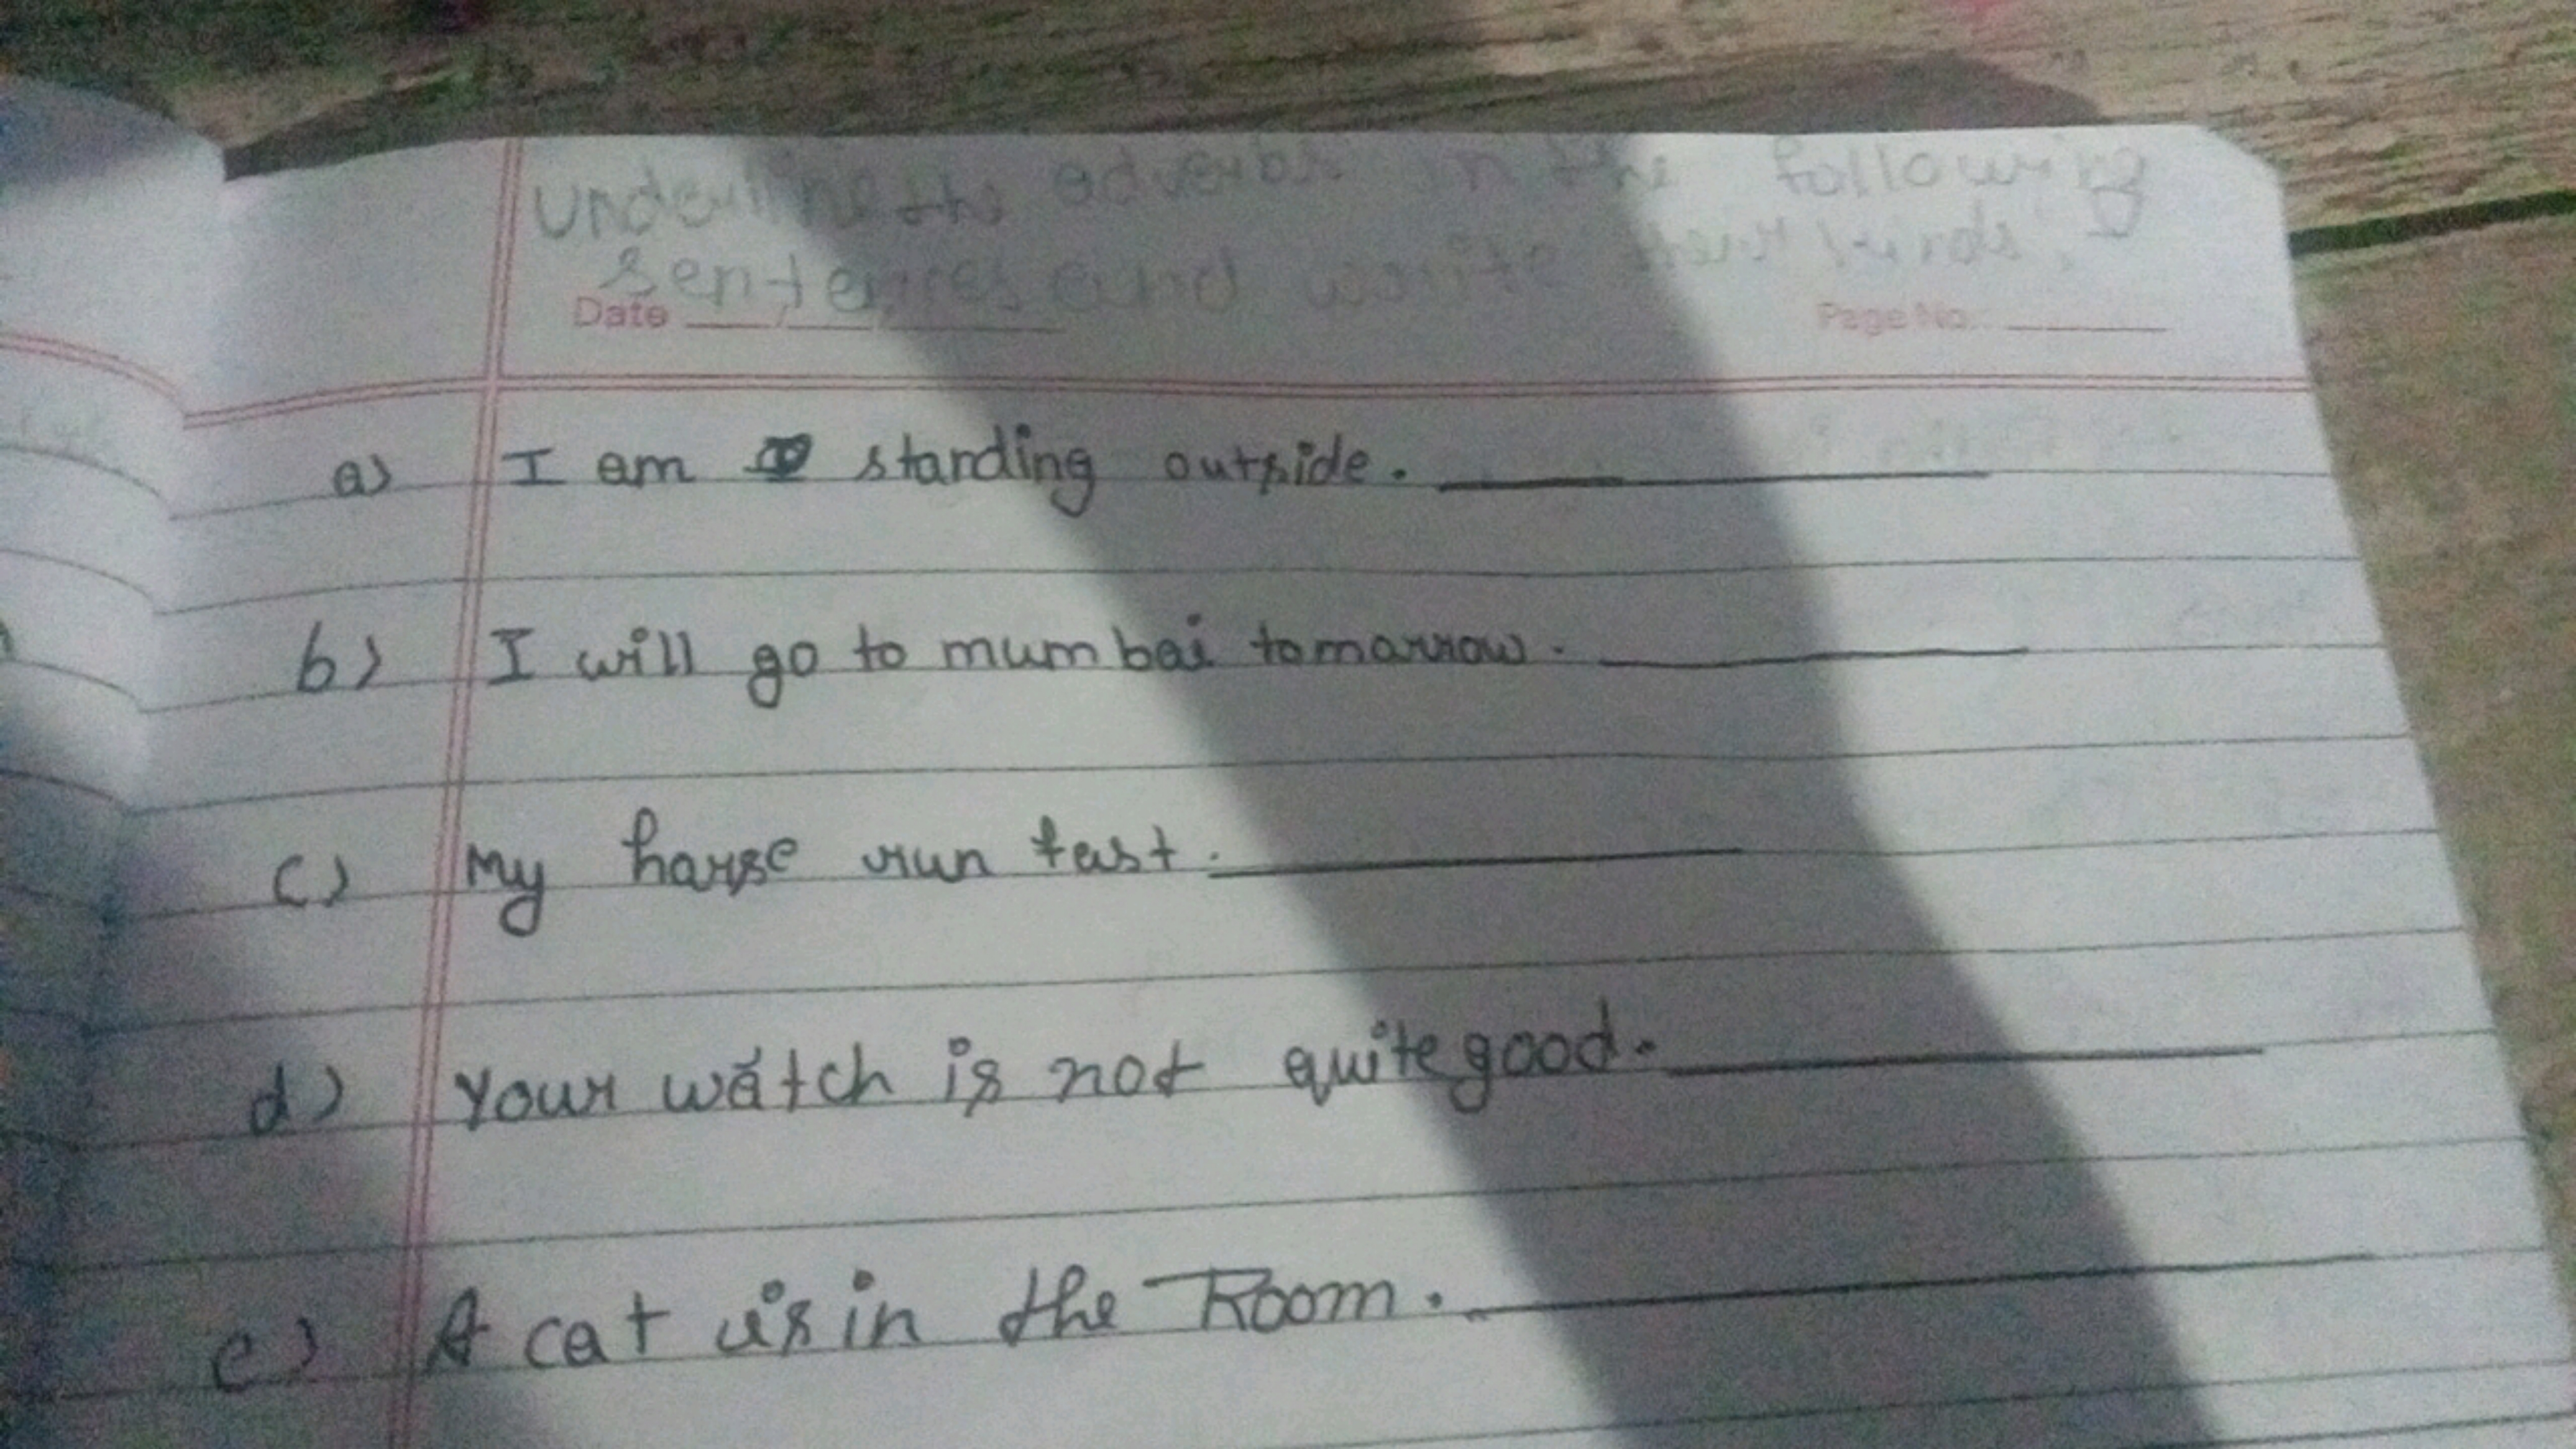 underline the adverbs in the following
sentences and write their kinds.
Date ___/___/___ Page No. ___
a) I am standing outside. ___
b) I will go to mumbai tomarrow. ___
c) My harse run fast. ___
d) Your watch is not quite good. ___
e) A cat is in the Room. ___